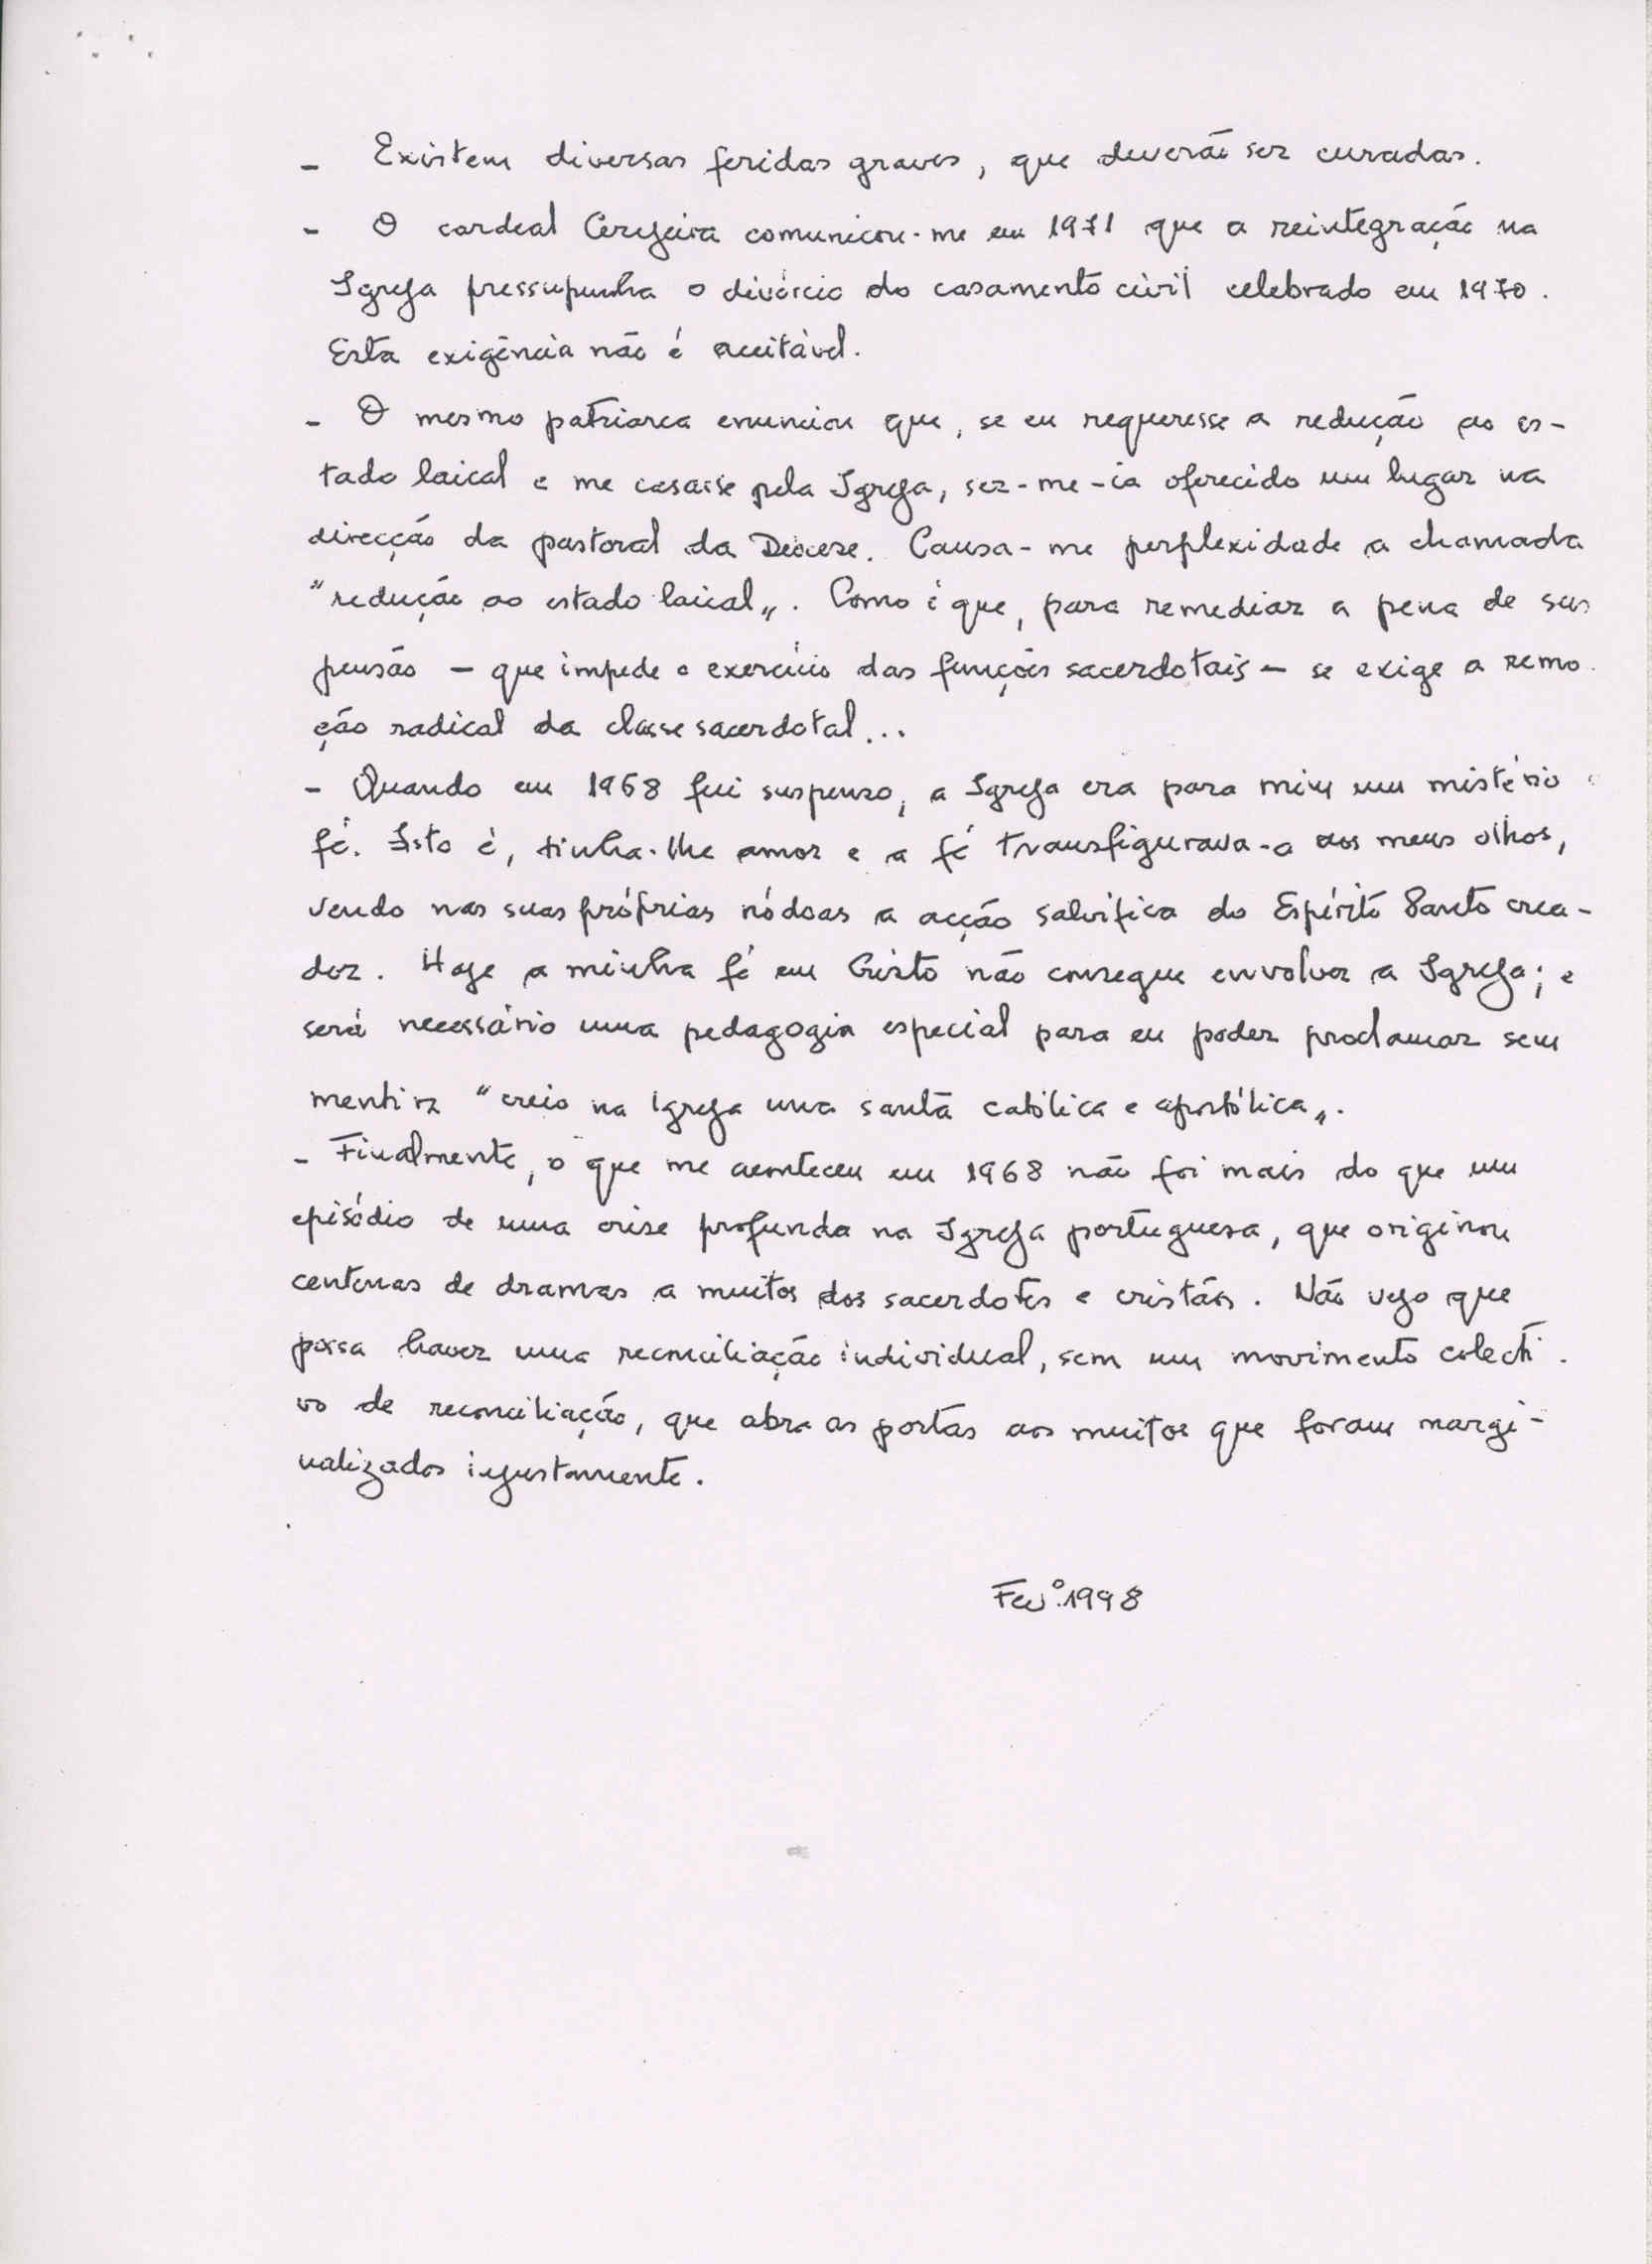 - Existem diversas feridas graves, que deverão ser curadas.
- O cardeal Cerejeira comunicou-me em 1971 que a reintegração na
Igreja pressupunha o divórcio do casamento civil celebrado em 1970.
Esta exigência não é aceitável.
- O mesmo patriarca enunciou que, se eu requeresse a redução ao es-
tado laical e me casasse pela Igreja, ser-me-ia oferecido um lugar na
direcção da pastoral da Diocese. Causa-me perplexidade a chamada
"redução ao estado laical". Como é que, para remediar a pena de sus
pensão — que impede o exercício das funções sacerdotais — se exige a remo
ção radical da classe sacerdotal...
- Quando em 1968 fui suspenso, a Igreja era para mim um mistério
fé. Isto é, tinha-lhe amor e a fé transfigurava-a aos meus olhos,
vendo nas suas próprias nódoas a acção salvífica do Espírito Santo crea-
dor. Hoje a minha fé em Cristo não consegue envolver a Igreja; e
será necessário uma pedagogia especial para eu poder proclamar sem
mentir "creio na Igreja una santa católica e apostólica".
- Finalmente, o que me aconteceu em 1968 não foi mais do que um
episódio de uma crise profunda na Igreja portuguesa, que originou
centenas de dramas a muitos dos sacerdotes e cristãos. Não vejo que
possa haver uma reconciliação individual, sem um movimento colecti-
vo de reconciliação, que abra as portas aos muitos que foram margi-
nalizados injustamente.
Fevº.1998